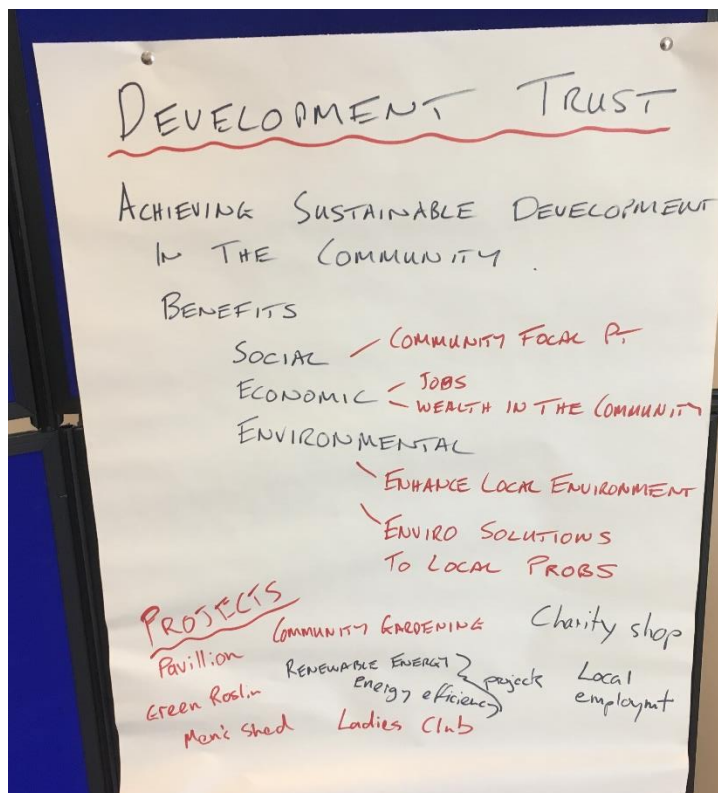 DEVELOPMENT TRUST
ACHIEVING SUSTAINABLE DEVELOPMENT
IN THE COMMUNITY.
BENEFITS
SOCIAL COMMUNITY FOCAL PT
ECONOMIC JOBS
WEALTH IN THE COMMUNITY
ENVIRONMENTAL
ENHANCE LOCAL ENVIRONMENT
ENVIRO SOLUTIONS
TO LOCAL PROBS
PROJECTS
COMMUNITY GARDENING
Charity shop
Pavillion
RENEWABLE ENERGY
energy efficiency
projects
Local
employmt
Green Roslin
Men's Shed
Ladies Club